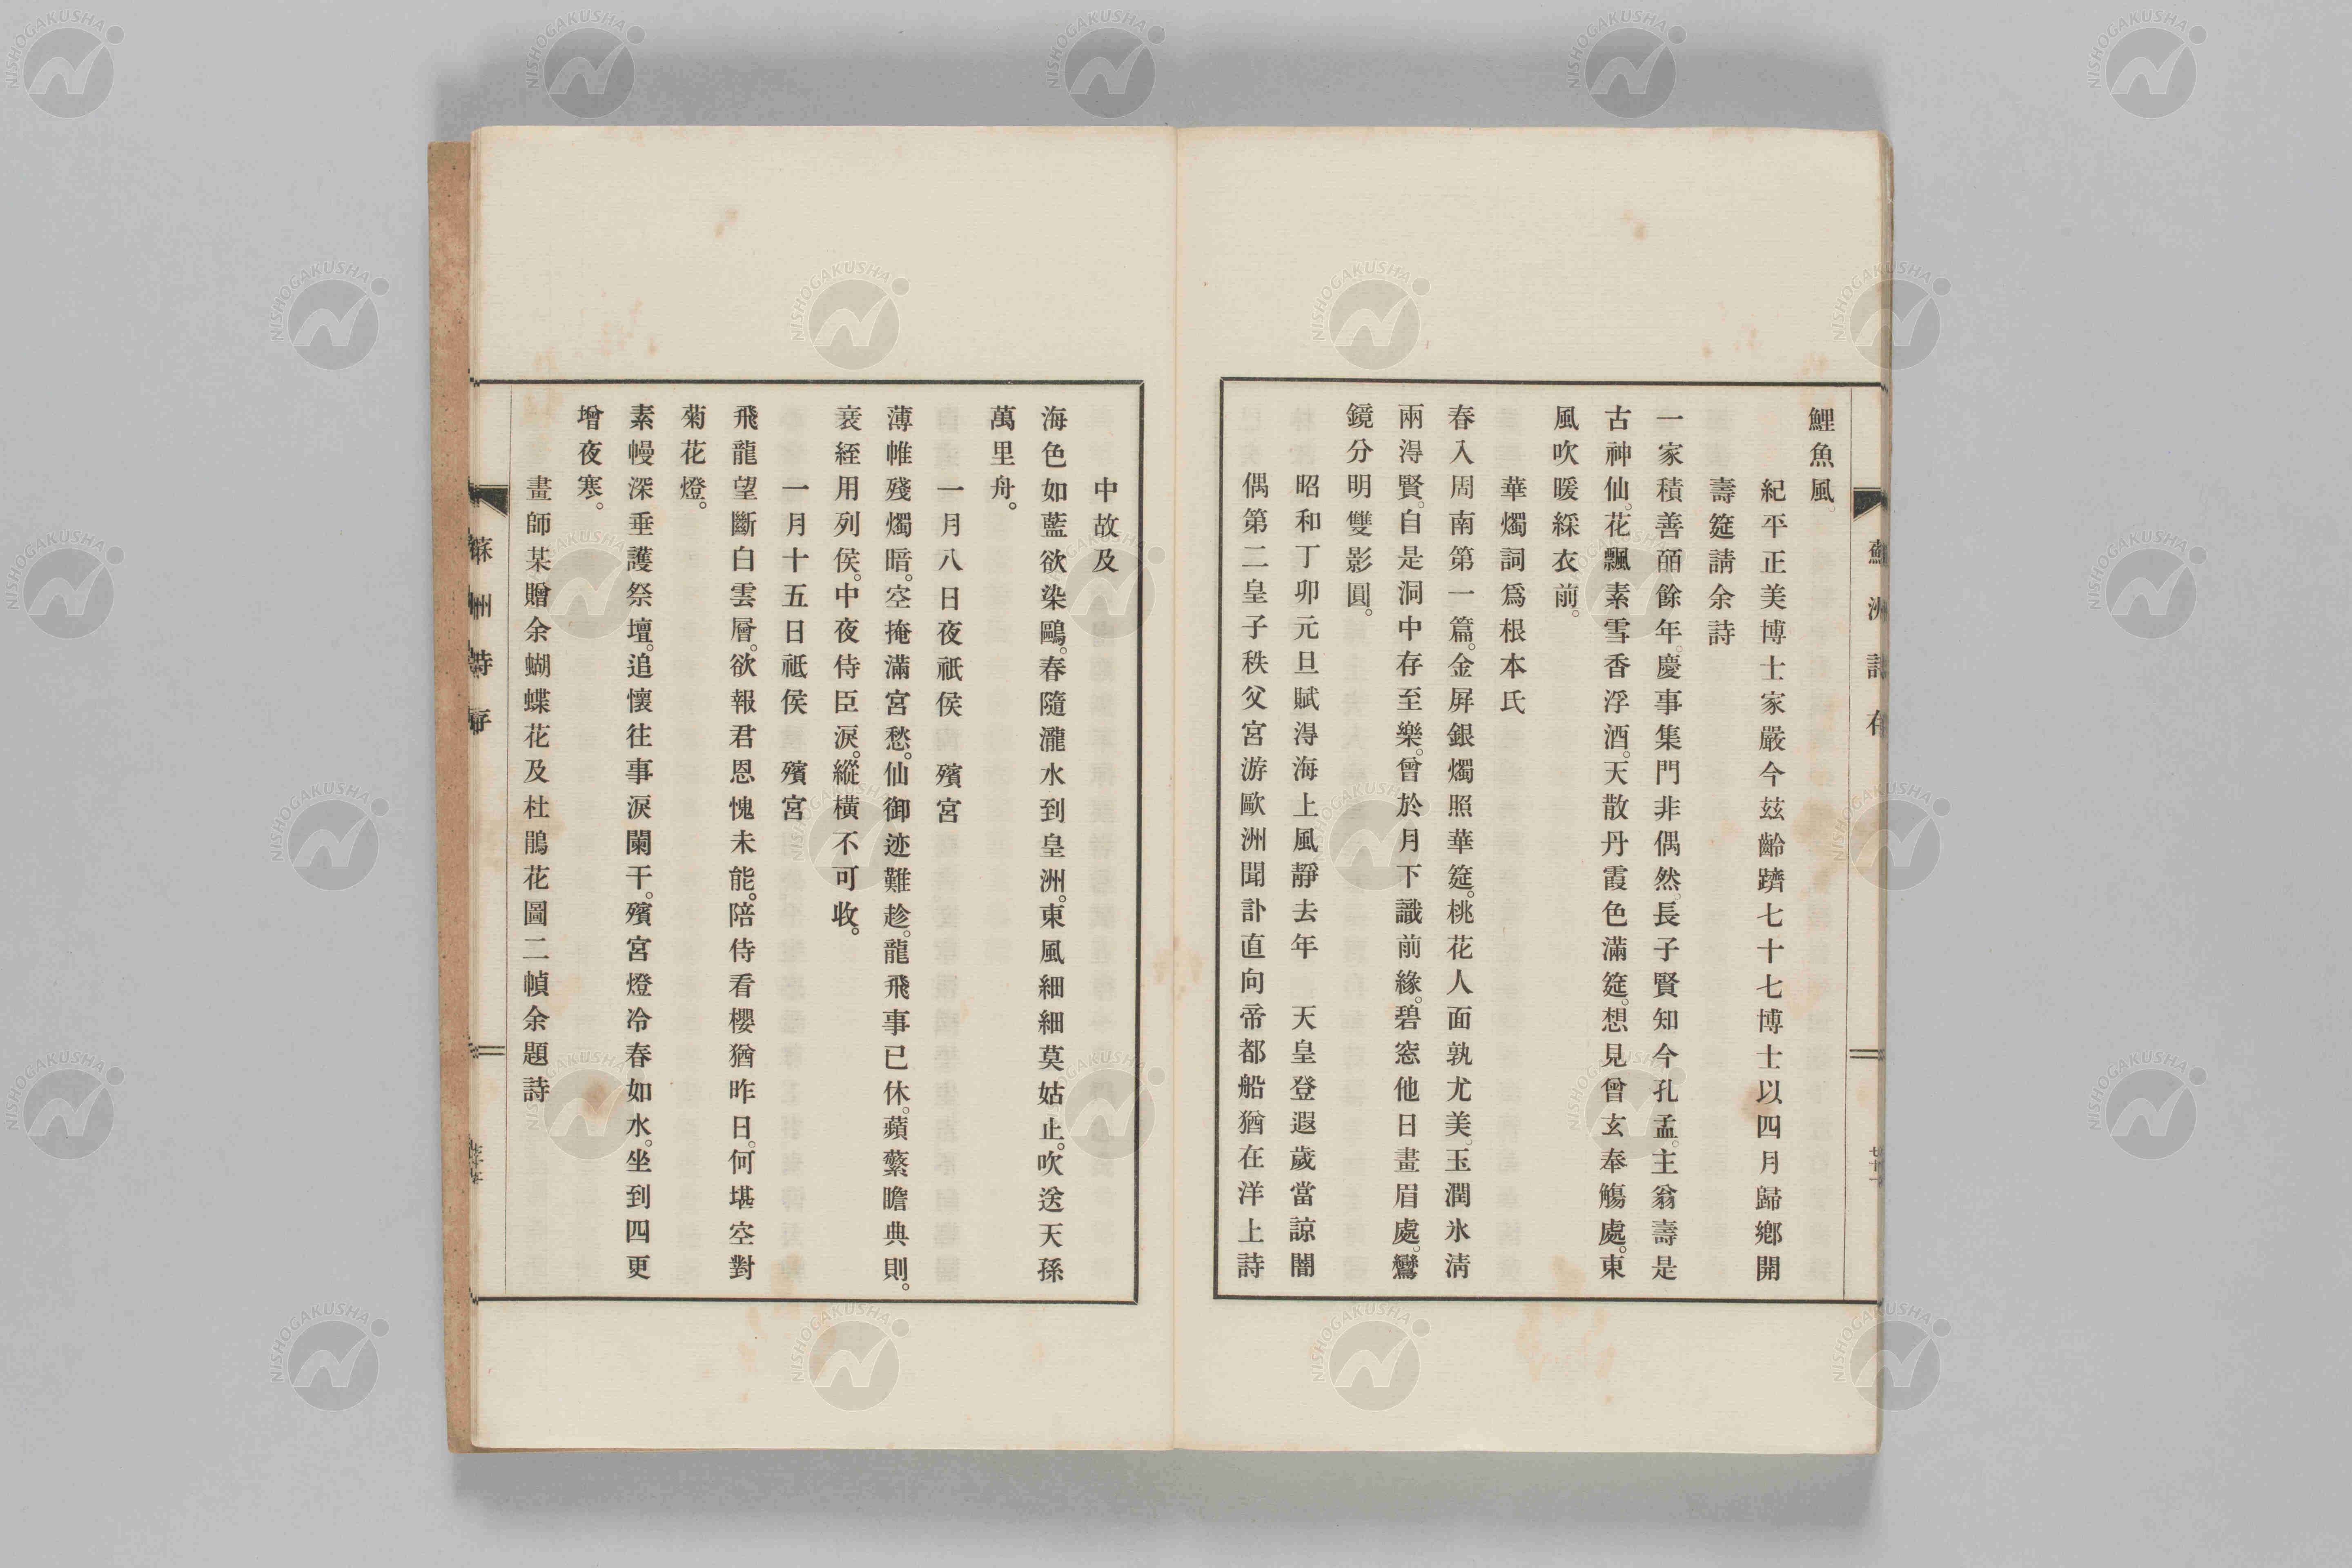 鯉魚風。
紀平正美博士家嚴今玆齡躋七十七博士以四月歸鄕開
壽筵請余詩
一家積善皕餘年。慶事集門非偶然。長子賢知今孔孟。主翁壽是
古神仙。花飄素雪香浮酒。天散丹霞色滿筵。想見曾玄奉觴處。東
風吹暖綵衣前。
華燭詞爲根本氏
春入周南第一篇。金屏銀燭照華筵。桃花人面孰尤美。玉潤氷淸
兩得賢。自是洞中存至樂。曾於月下識前緣。碧窓他日畫眉處。鸞
鏡分明雙影圓。
昭和丁卯元旦賦得海上風靜去年　天皇登遐歲當諒闇
偶第二皇子秩父宮游歐洲聞訃直向帝都船猶在洋上詩
中故及
海色如藍欲染鷗。春隨瀧水到皇洲。東風細細莫姑止。吹送天孫
萬里舟。
一月八日夜祇侯　殯宮
薄帷殘燭暗。空掩滿宮愁。仙御迹難趁。龍飛事已休。蘋蘩瞻典則。
衰絰用列侯。中夜侍臣淚。縱橫不可收。
一月十五日祇侯　殯宮
飛龍望斷白雲層。欲報君恩愧未能。陪侍看櫻猶昨日。何堪空對
菊花燈。
素幔深垂護祭壇。追懷往事淚闌干。殯宮燈冷春如水。坐到四更
增夜寒。
畫師某贈余蝴蝶花及杜鵑花圖二幀余題詩